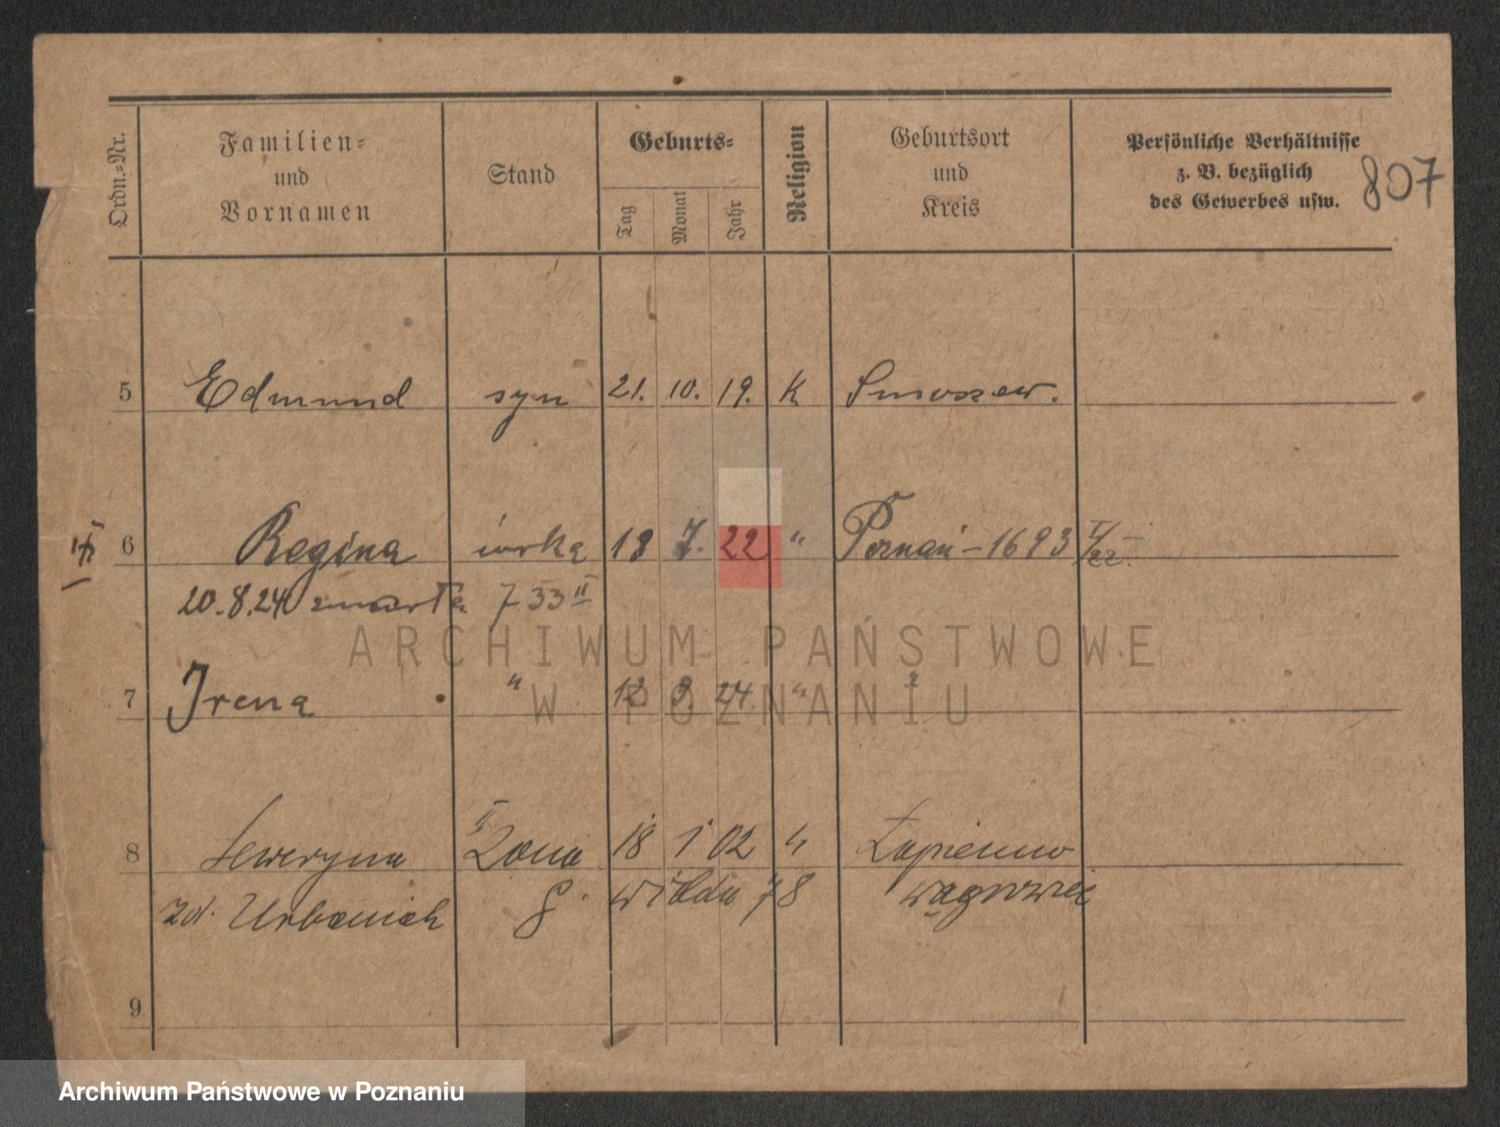 Ordn.-Nr.
Familien-
und
Vornamen
Stand
Geburts-
Tag
Monat
Jahr
Religion
Geburtsort
und
Kreis
Persönliche Verhältnisse
z. B. bezüglich
des Gewerbes usw.
807
5 Edmund syn 21. 10. 19. K Smoszew.
6 Regina córka 18 7. 22 " Poznań - 1693
20.8.24 zmarła 733 II
7 Irena " 12 9. 24. " "
8 Seweryna II Żona 18 1 02 " Łopienno
zd. Urbaniak G. Wilda 78 Wągrowiec
9
ARCHIWUM PAŃSTWOWE
W POZNANIU
Archiwum Państwowe w Poznaniu